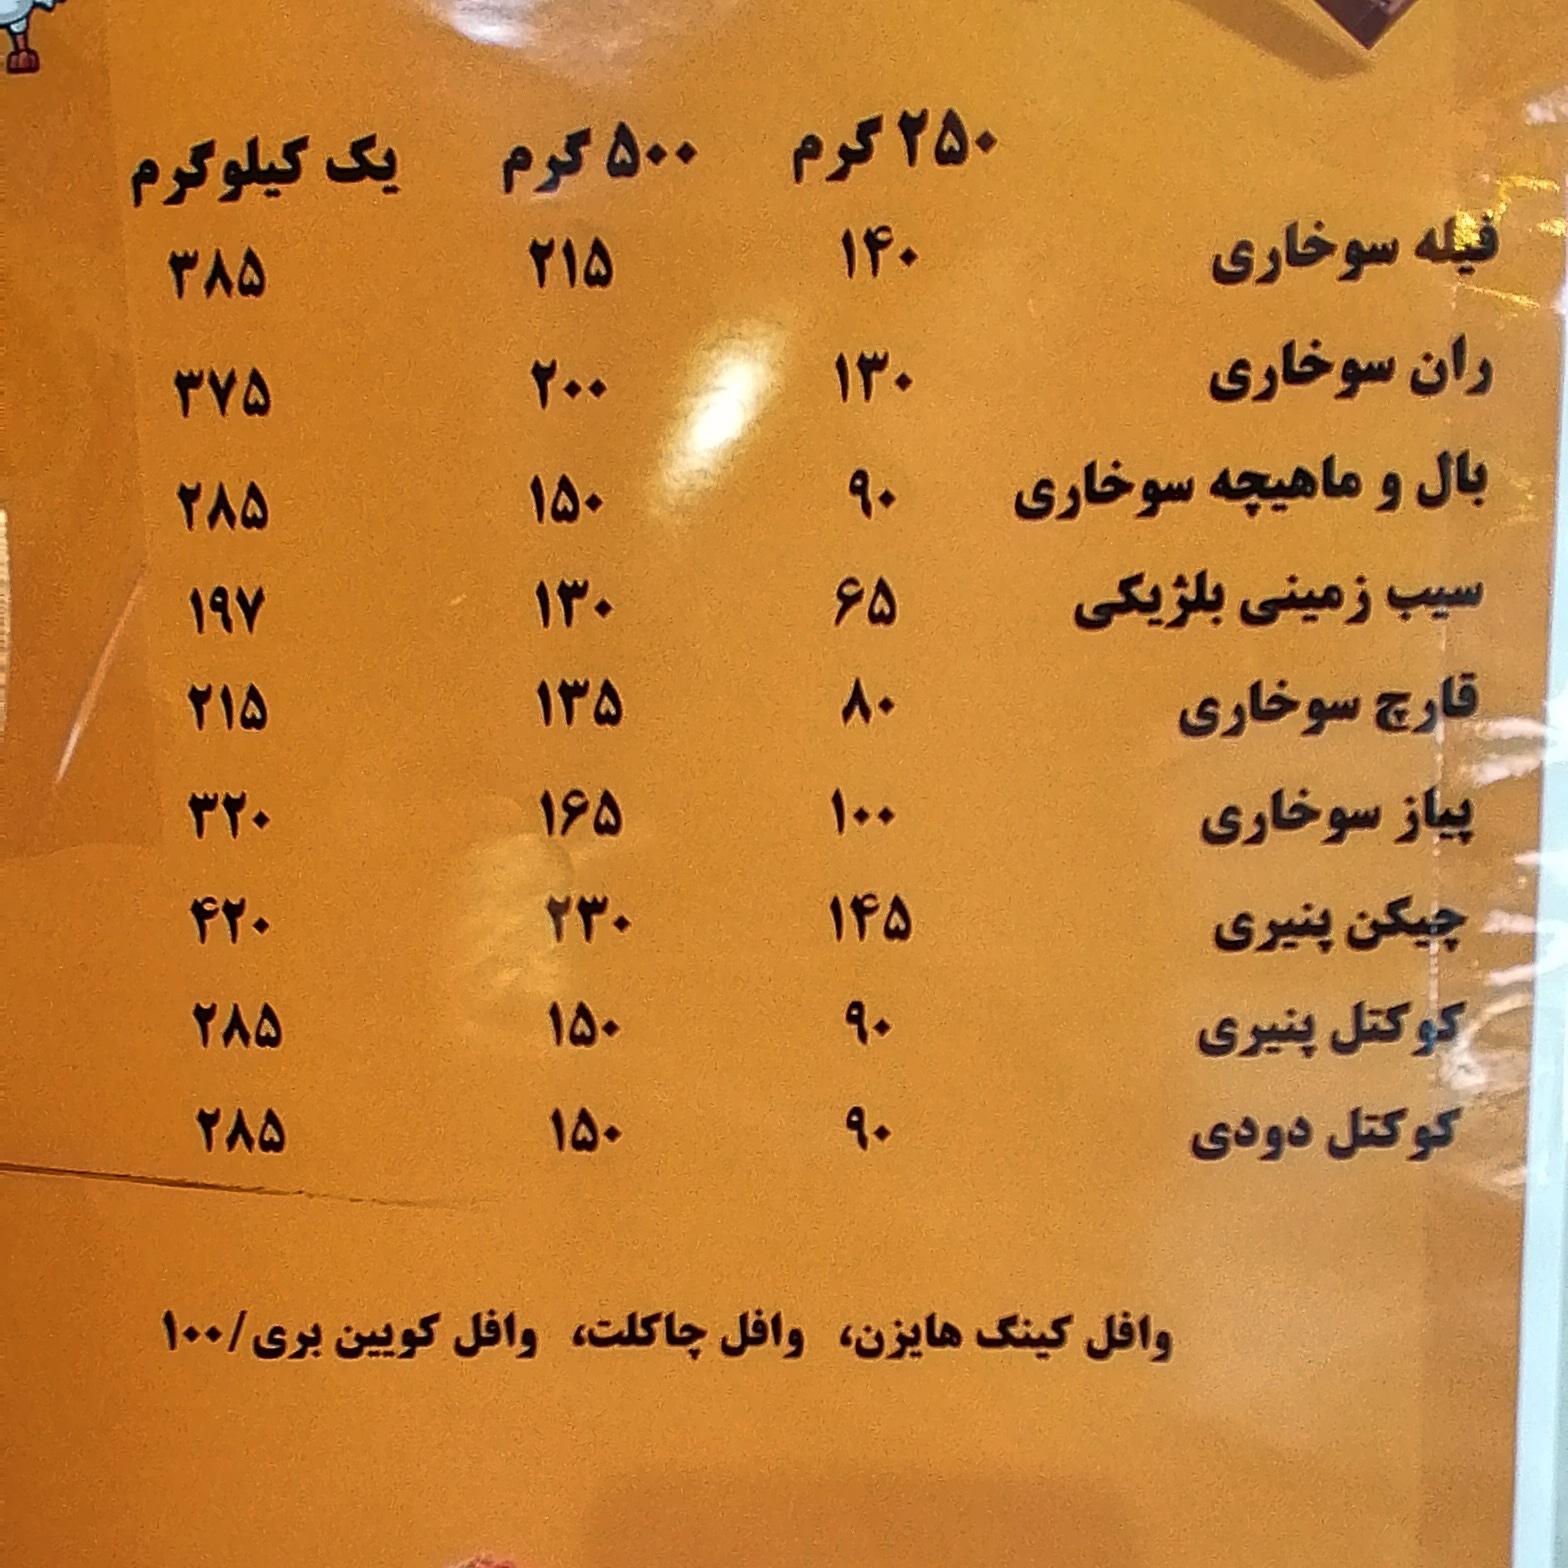 ۲۵۰ گرم ۵۰۰ گرم یک کیلوگرم
فیله سوخاری ۱۴۰ ۲۱۵ ۳۸۵
ران سوخاری ۱۳۰ ۲۰۰ ۳۷۵
بال و ماهیچه سوخاری ۹۰ ۱۵۰ ۲۸۵
سیب زمینی بلژیکی ۶۵ ۱۳۰ ۱۹۷
قارچ سوخاری ۸۰ ۱۳۵ ۲۱۵
پیاز سوخاری ۱۰۰ ۱۶۵ ۳۲۰
چیکن پنیری ۱۴۵ ۲۳۰ ۴۲۰
کوکتل پنیری ۹۰ ۱۵۰ ۲۸۵
کوکتل دودی ۹۰ ۱۵۰ ۲۸۵
وافل کینک هایزن، وافل چاکلت، وافل کویین بری/۱۰۰